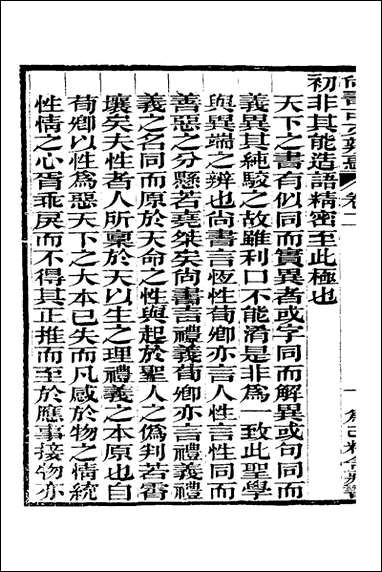 初非其能造語精密至此極也
天下之書有似同而實異者或字同而解異或句同而
義異其純駁之故雖利口不能淆是非為一致此聖學
與異端之辨也尚書言恆性荀卿亦言人性言性同而
善惡之分懸若堯桀矣尚書言禮義荀卿亦言禮義禮
義之名同而原於天命之性與起於聖人之偽判若霄
壤矣夫性者人所稟於天以生之理禮義之本原也自
荀卿以性為惡天下之大本已失而凡感於物之情統
性情之心胥乖戾而不得其正推而至於應事接物亦